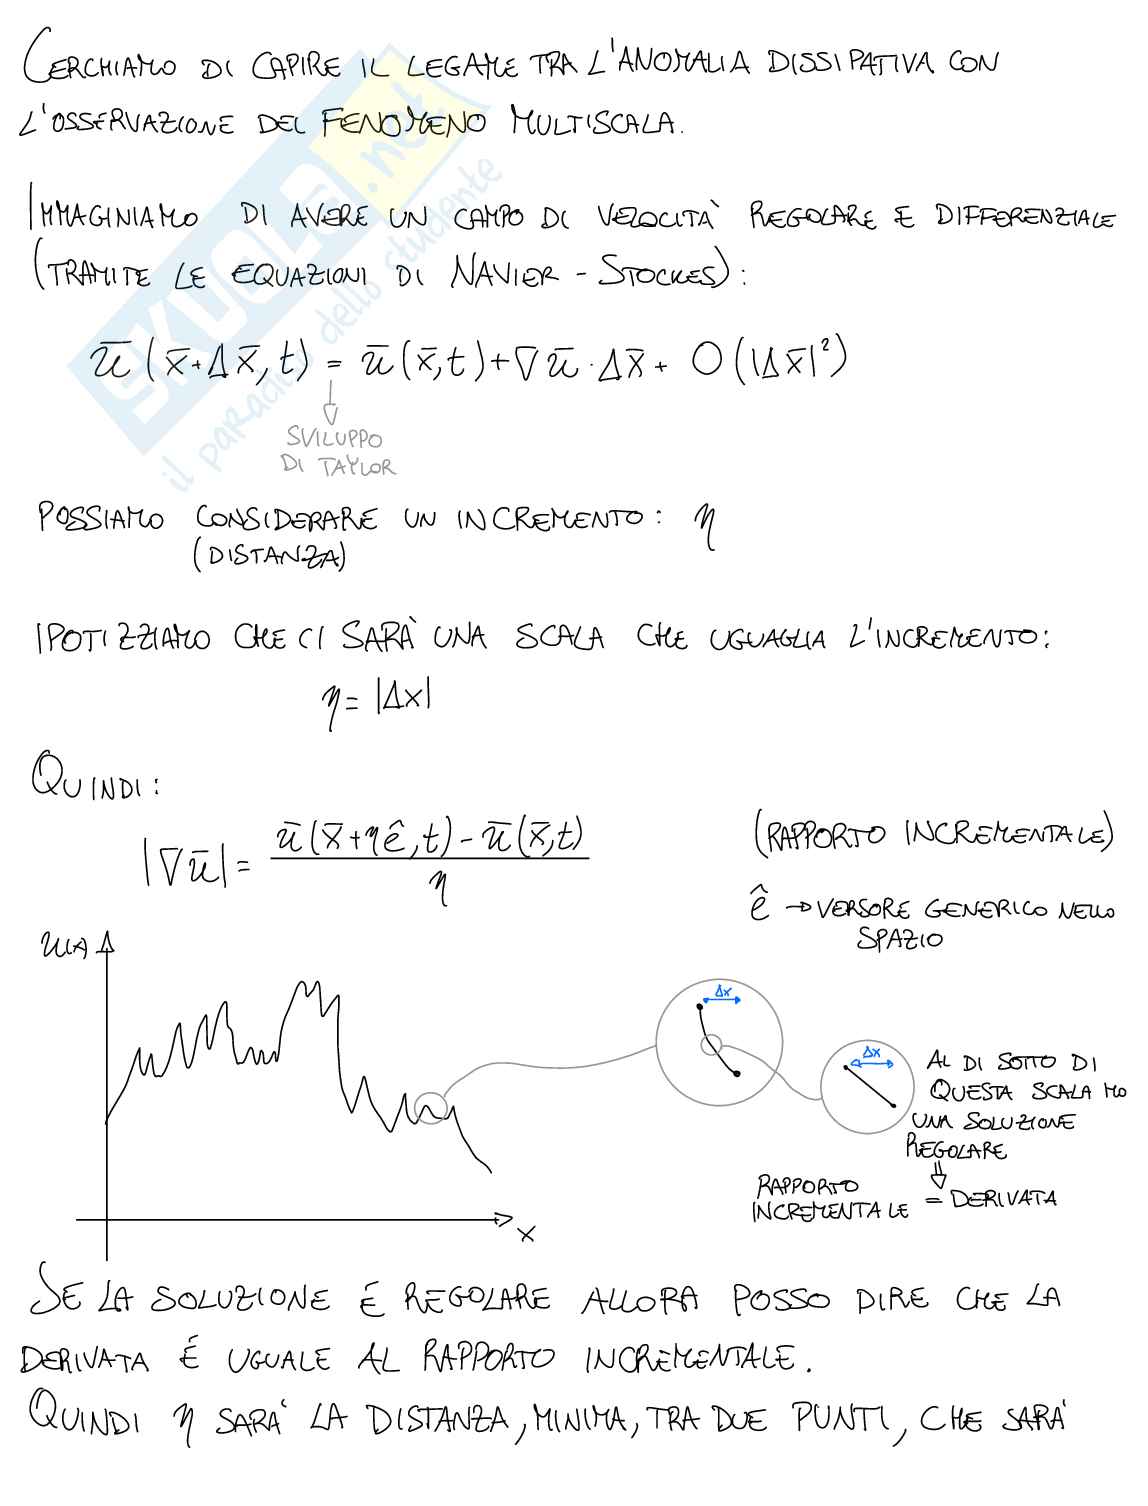 CERCHIAMO DI CAPIRE IL LEGAME TRA L'ANOMALIA DISSIPATIVA CON
L'OSSERVAZIONE DEL FENOMENO MULTISCALA.
IMMAGINIAMO DI AVERE UN CAMPO DI VELOCITÀ REGOLARE E DIFFERENZIALE
(TRAMITE LE EQUAZIONI DI NAVIER - STOCKES):
ū(x̄+Δx̄,t) = ū(x̄,t)+∇ū·Δx̄+ O(|Δx̄|²)
SVILUPPO
DI TAYLOR
POSSIAMO CONSIDERARE UN INCREMENTO: η
(DISTANZA)
IPOTIZZIAMO CHE CI SARÀ UNA SCALA CHE UGUAGLIA L'INCREMENTO:
η = |Δx|
QUINDI:
|∇ū| = ū(x̄+ηê,t)-ū(x̄,t) / η
(RAPPORTO INCREMENTALE)
ê → VERSORE GENERICO NELLO
SPAZIO
U(A)
Δx
Δx
AL DI SOTTO DI
QUESTA SCALA HO
UNA SOLUZIONE
REGOLARE
⇓
RAPPORTO
INCREMENTALE = DERIVATA
x
SE LA SOLUZIONE É REGOLARE ALLORA POSSO DIRE CHE LA
DERIVATA É UGUALE AL RAPPORTO INCREMENTALE.
QUINDI η SARÀ LA DISTANZA, MINIMA, TRA DUE PUNTI, CHE SARÀ
SKUOLA.net
il paradiso dello studente